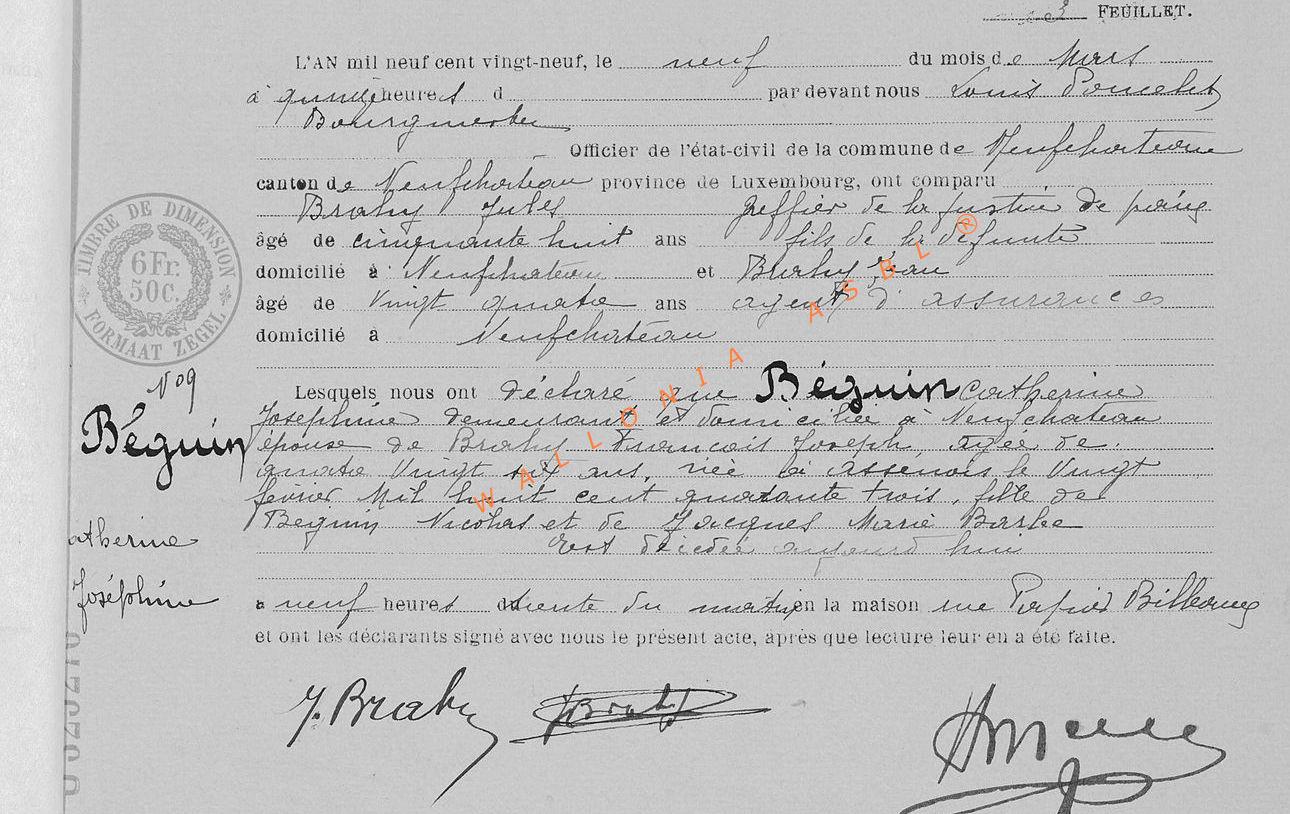 3 FEUILLET.
L'AN mil neuf cent vingt-neuf, le neuf du mois de Mars
à quinze heures d par devant nous Louis Poncelet
Bourgmestre
Officier de l'état-civil de la commune de Neufchateau
canton de Neufchateau province de Luxembourg, ont comparu
Brahy Jules greffier de la justice de paix
âgé de cinquante huit ans fils de la défunte
domicilié à Neufchateau et Brahy Jean
âgé de Vingt quatre ans agent d'assurances
domicilié à Neufchateau
TIMBRE DE DIMENSION
6 Fr.
50c.
FORMAAT ZEGEL
N° 9
Béguin
atherine
Joséphine
Lesquels nous ont déclaré que Béguin Catherine
Josephine demeurant et domiciliée à Neufchateau
épouse de Brahy Francois Joseph, agée de
quatre Vingt six ans, née à Assenois le Vingt
février Mil huit cent quarante trois, fille de
Beguin Nicolas et de Jacques Marie Barbe
Est décédée aujourd'hui
à neuf heures trente du matin en la maison rue
et ont les déclarants signé avec nous le présent acte, après que lecture leur en a été faite.
J. Brahy
WALLONIA ASBL ®